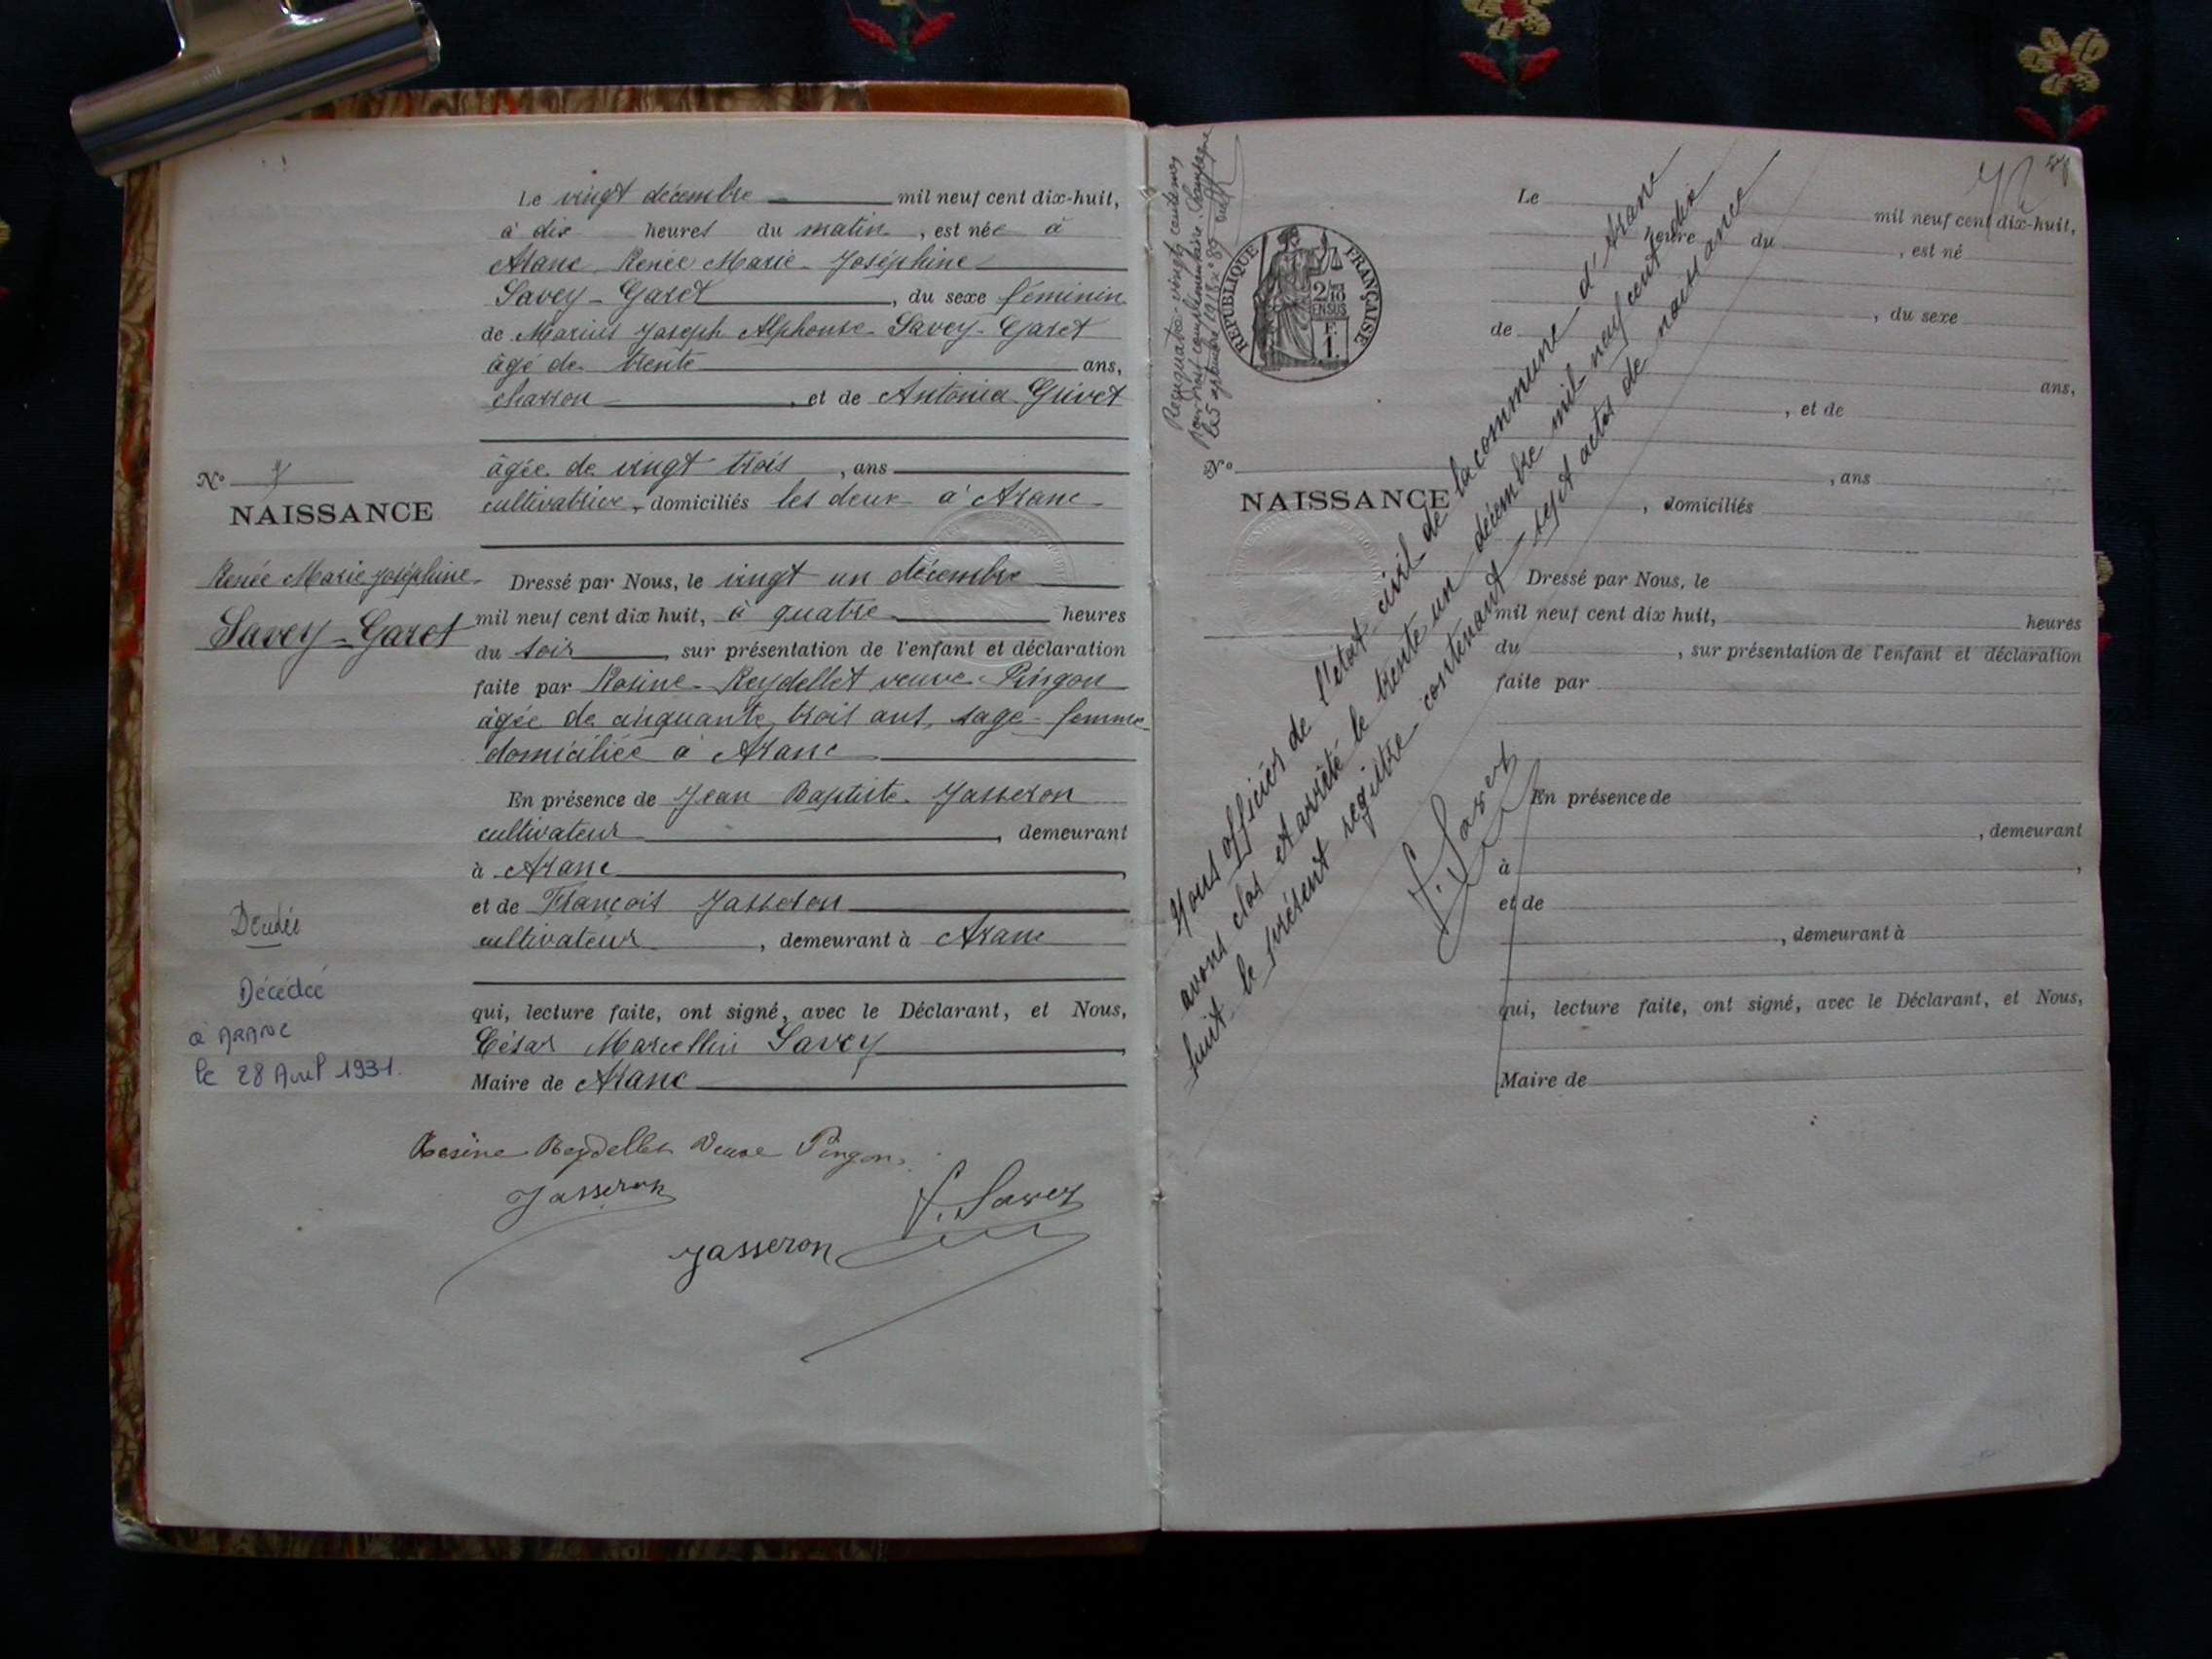 Le vingt décembre mil neuf cent dix-huit,
à dix heures du matin, est née à
Aranc Renée Marie Joséphine
Savey-Garet, du sexe féminin
de Marius Joseph Alphonse Savey-Garet
âgé de trente ans,
charron, et de Antonia Grivet
âgée de vingt trois, ans
cultivatrice, domiciliés les deux à Aranc
N° 7
NAISSANCE
Renée Marie Joséphine
Savey-Garet
Dressé par Nous, le vingt un décembre
mil neuf cent dix huit, à quatre heures
du soir, sur présentation de l'enfant et déclaration
faite par Rosine Reydellet veuve Pingon
âgée de cinquante trois ans, sage-femme
domiciliée à Aranc
En présence de Jean Baptiste Jasseron
cultivateur, demeurant
à Aranc,
et de François Jasseron
cultivateur, demeurant à Aranc
qui, lecture faite, ont signé, avec le Déclarant, et Nous,
César Marcellin Savey,
Maire de Aranc
Décédée
à ARANC
le 28 Avril 1931.
Rosine Reydellet Veuve Pingon
Jasseron
Jasseron
Savey
complémentaire
septembre 1918 n° 89
RÉPUBLIQUE FRANÇAISE
2/10
EN SUS
F.
1.
Le mil neuf cent dix-huit,
heure du, est né
, du sexe
de
ans,
, et de
, ans
, domiciliés
N°
NAISSANCE
Dressé par Nous, le
mil neuf cent dix huit, heures
du, sur présentation de l'enfant et déclaration
faite par
En présence de
, demeurant
à,
et de
, demeurant à
qui, lecture faite, ont signé, avec le Déclarant, et Nous,
Maire de
Nous officier de l'état-civil de la commune d'Aranc
avons clos et arrêté le trente un décembre mil neuf cent dix
huit le présent registre contenant sept actes de naissance
Savey